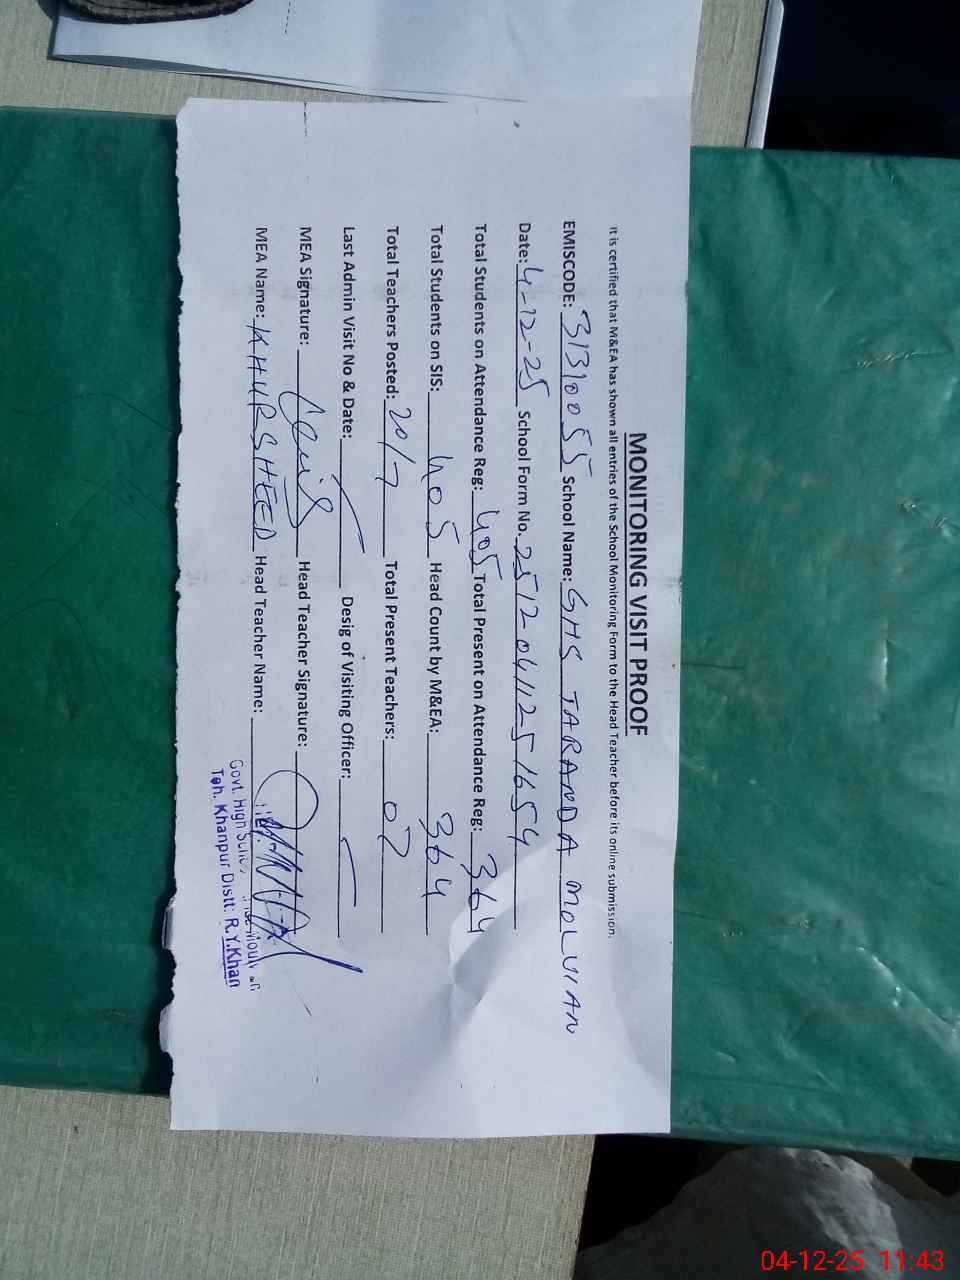 MONITORING VISIT PROOF
It is certified that M&EA has shown all entries of the School Monitoring Form to the Head Teacher before its online submission.
EMISCODE: 31310055 School Name: GHS TARANDA MOLVIAN
Date: 4-12-25 School Form No. 2512-041125-1654
Total Students on Attendance Reg: 405 Total Present on Attendance Reg: 364
Total Students on SIS: 405 Head Count by M&EA: 364
Total Teachers Posted: 20/7 Total Present Teachers: 07
Last Admin Visit No & Date: Desig of Visiting Officer:
MEA Signature: Head Teacher Signature:
MEA Name: KHURSHEED Head Teacher Name:
Govt. High
Teh. Khanpur Distt: R.Y.Khan
04-12-25 11:43